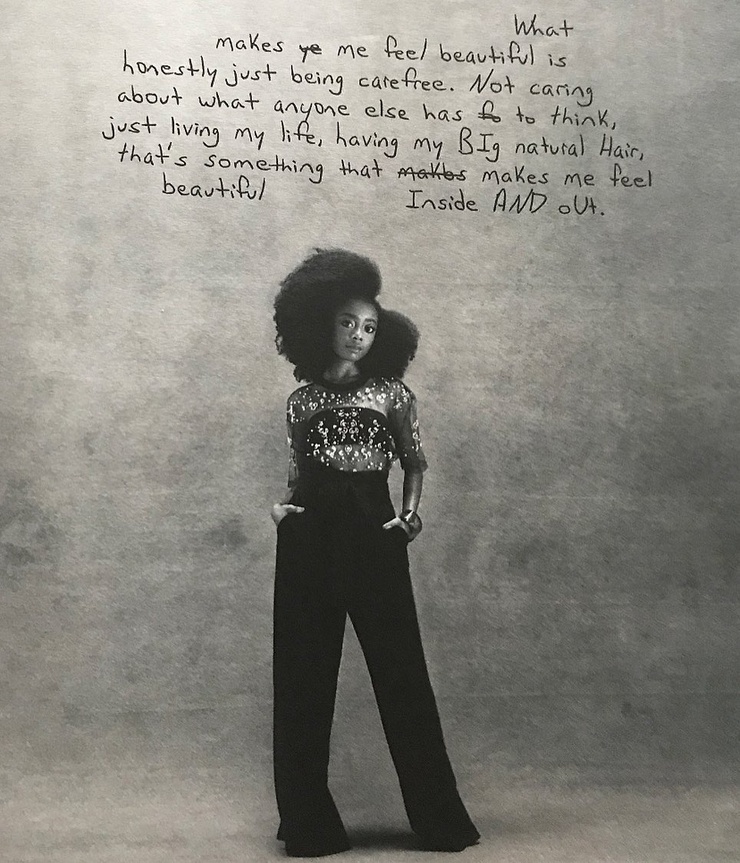 What
makes ye me feel beautiful is
honestly just being carefree. Not caring
about what anyone else has to to think,
just living my life, having my BIg natural Hair,
that's something that makes makes me feel
beautiful Inside AND oUt.